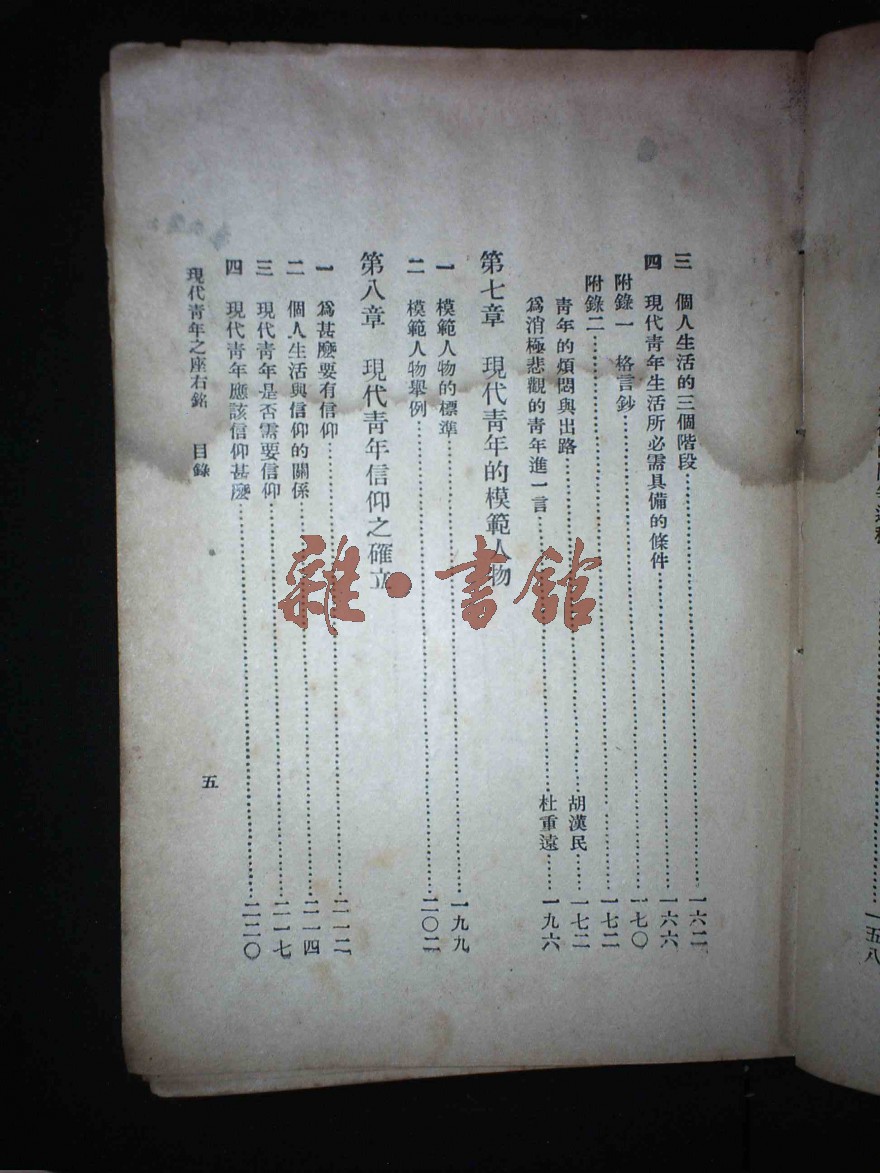 三　個人生活的三個階段……一六二
四　現代靑年生活所必需具備的條件……一六六
附錄一　格言鈔……一七〇
附錄二……一七二
靑年的煩悶與出路……胡漢民……一七二
爲消極悲觀的靑年進一言……杜重遠……一九六
第七章　現代靑年的模範人物
一　模範人物的標準……一九九
二　模範人物舉例……二〇二
第八章　現代靑年信仰之確立
一　爲甚麽要有信仰……二一二
二　個人生活與信仰的關係……二一四
三　現代靑年是否需要信仰……二一七
四　現代靑年應該信仰甚麽……二二〇
現代靑年之座右銘　目錄
五
雜·書館
一五八